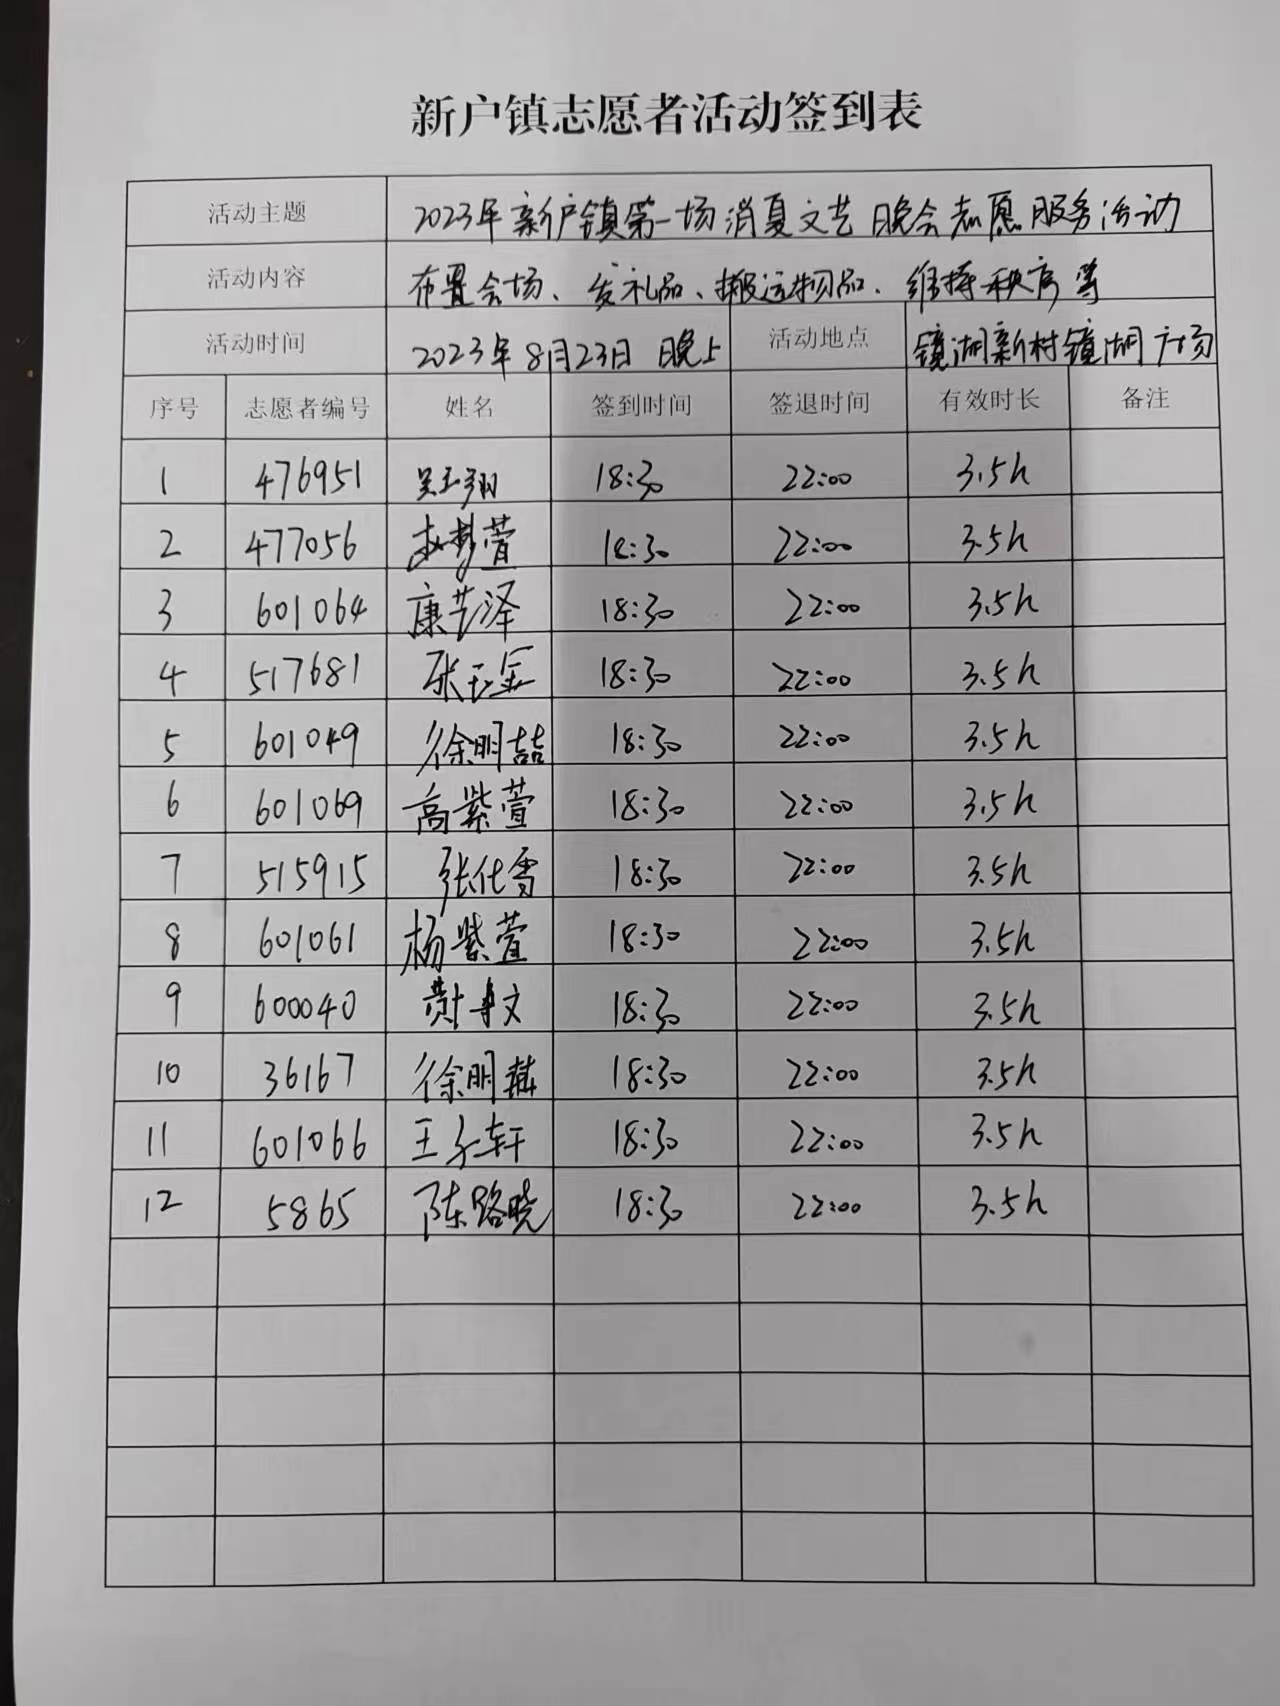 新户镇志愿者活动签到表
活动主题 2023年新户镇第一场消夏文艺晚会志愿服务活动
活动内容 布置会场、发礼品、搬运物品、维持秩序等
活动时间 2023年8月23日 晚上 活动地点 镜湖新村镜湖广场
序号 志愿者编号 姓名 签到时间 签退时间 有效时长 备注
1 476951 吴玉翔 18:30 22:00 3.5h
2 477056 赵梦萱 18:30 22:00 3.5h
3 601064 康艺泽 18:30 22:00 3.5h
4 517681 张玉金 18:30 22:00 3.5h
5 601049 徐明喆 18:30 22:00 3.5h
6 601069 高紫萱 18:30 22:00 3.5h
7 515915 张仕雪 18:30 22:00 3.5h
8 601061 杨紫萱 18:30 22:00 3.5h
9 600040 18:30 22:00 3.5h
10 36167 徐明 18:30 22:00 3.5h
11 601066 王子轩 18:30 22:00 3.5h
12 5865 陈路晓 18:30 22:00 3.5h